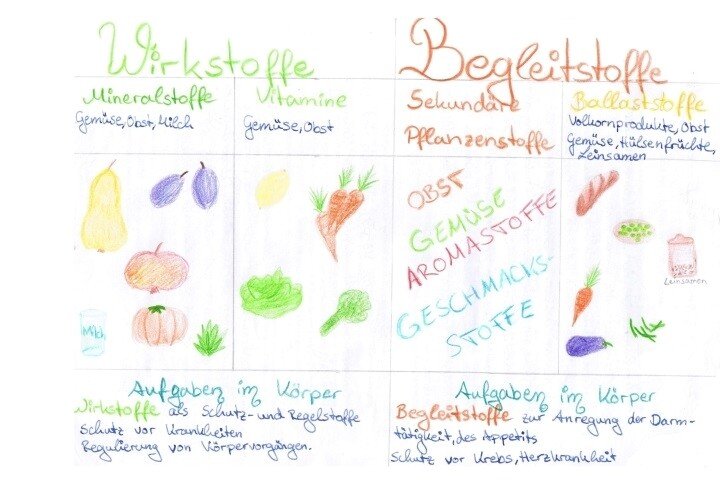 Wirkstoffe
Begleitstoffe
Mineralstoffe
Gemüse, Obst, Milch
Vitamine
Gemüse, Obst
Sekundäre
Pflanzenstoffe
Ballaststoffe
Volkornprodukte, Obst
Gemüse, Hülsenfrüchte,
Leinsamen
Milch
OBST
GEMÜSE
AROMASTOFFE
GESCHMACKS-
STOFFE
Leinsamen
Aufgaben im Körper
Wirkstoffe als Schutz- und Regelstoffe
Schutz vor Krankheiten
Regulierung von Körpervorgängen.
Aufgaben im Körper
Begleitstoffe zur Anregung der Darm-
tätigkeit, des Appetits
Schutz vor Krebs, Herzkrankheit